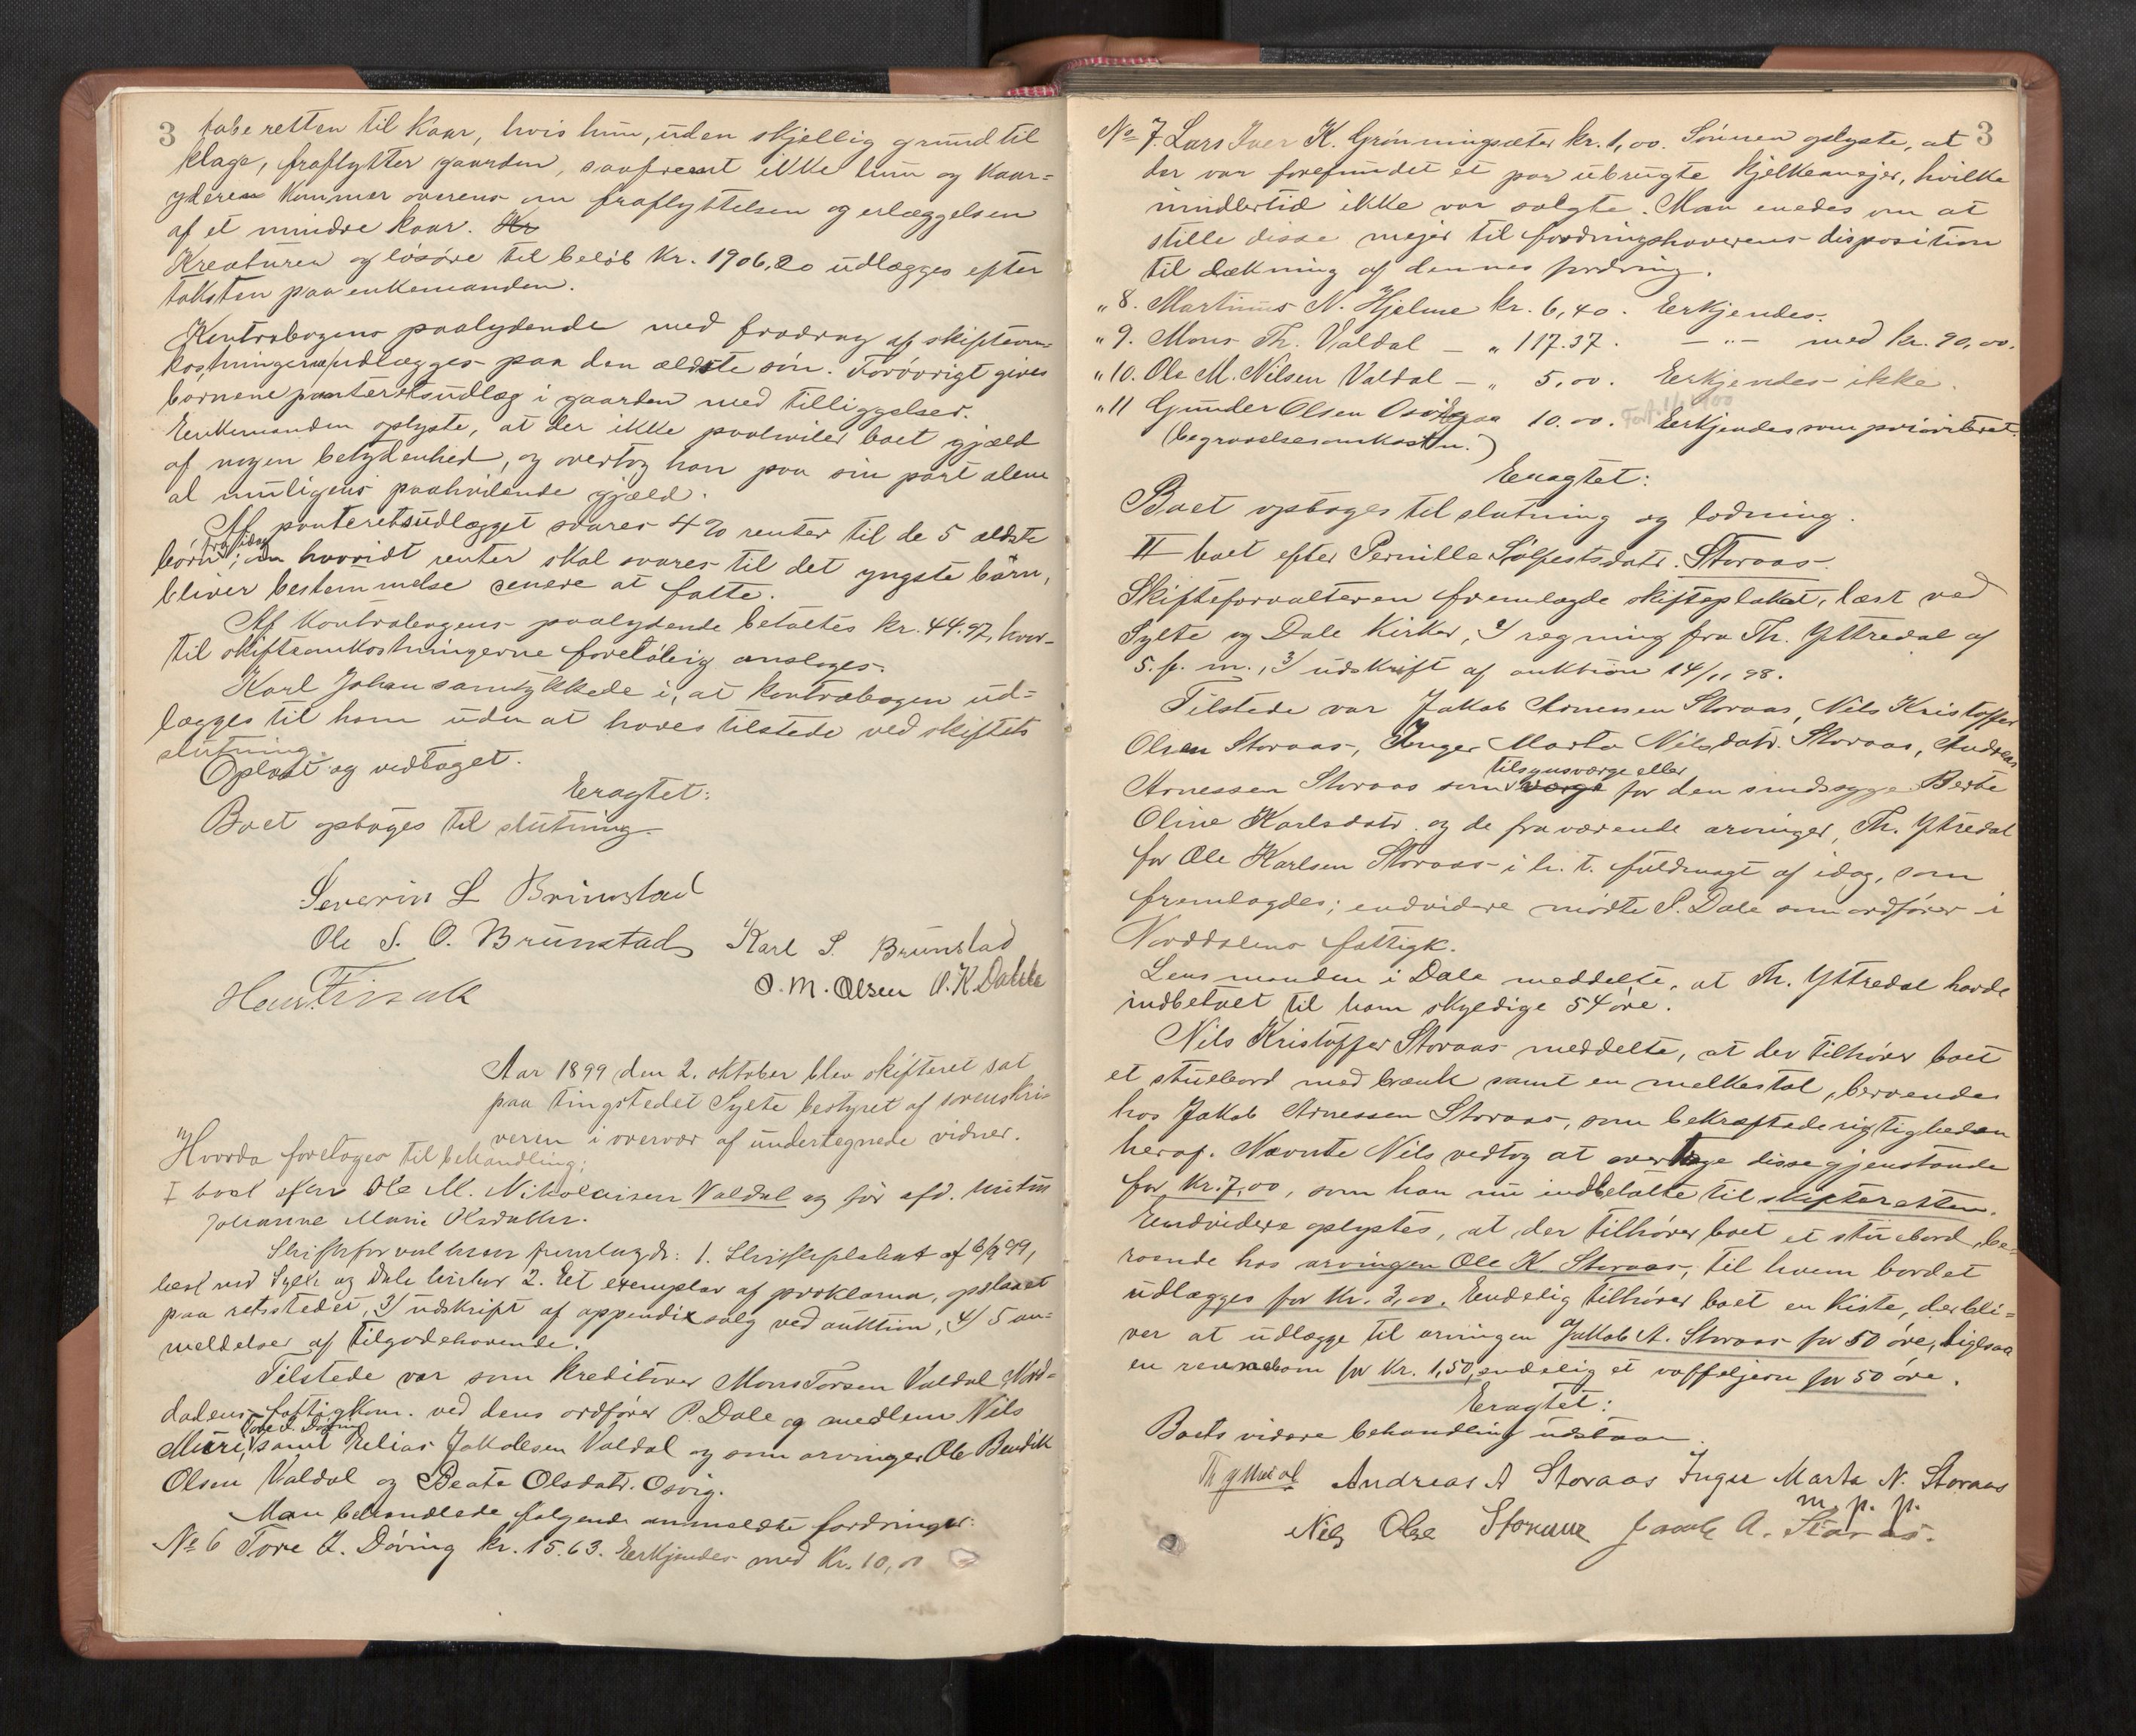 3
tabe retten til Kaar, hvis hun, uden skjellig grund til
klage, fraflytter gaarden, saafremt ikke hun og kaar-
yderen kommer overens om fraflyttelsen og erlæggelsen
af et mindre kaar. Kr
Kreaturer og løsøre til beløb Kr. 1906,20 udlægges efter
taksten paa enkemanden.
Kontrabogens paalydende med fradrag af skifteom-
kostningerne udlægges paa den ældste søn. Forøvrigt gives
børnene panteretsudlæg i gaarden med tilliggelser.
Enkemanden oplyste, at der ikke paahviler boet gjæld
af nogen betydenhed, og overtog han paa sin part alene
al muligens paahvilende gjæld.
Af panteretsudlægget svares 4% renter til de 5 ældste
børn fra idag; om hvorvidt renter skal svares til det yngste barn,
bliver bestemmelse senere at fatte.
Af kontrabogens paalydende betaltes kr. 44.97, hvor-
til skifteomkostningerne foreløbig ansloges.
Karl Johan samtykkede i, at kontrabogen ud-
lægges til ham uden at haves tilstede ved skiftets
slutning.
Oplæst og vedtaget.
Eragtet:
Boet optoges til slutning.
Severin L Brunstad
Ole S. O. Brunstad Karl S. Brunstad
O. M. Olsen O. K. Dahle
Aar 1899 den 2. oktober blev skifteret sat
paa tingstedet Sylte bestyret af sorenskri-
veren i overvær af undertegnede vidner.
Hvorda foretoges til behandling:
I boet efter Ole M. Nikolaisen Valdal og før afd. hustru
Johanne Marie Olsdatter.
Skifteforvalteren fremlagde: 1. Skifteplakat af 6/9 99,
læst ved Sylte og Dale kirker 2. Et exemplar af proklama, opslaaet
paa retsstedet, 3/ udskrift af appendixsalg ved auktion, 4/ 5 an-
meldelser af tilgodehavende.
Tilstede var som kreditorer Mons Torsen Valdal, Nord-
dalens fattigkom. ved dens ordfører P. Dale og medlem Nils
Muri, Tore J. Døving samt Elias Jakobsen Valdal og som arvinger Ole Bendik
Olsen Valdal og Beate Olsdatr. Osvig.
Man behandlede følgende anmeldte fordringer:
No 6 Tore J. Døving kr. 15.63. Erkjendes med Kr. 10,00
3
No 7. Lars Iver K. Grønningsæter kr. 1,00. Sønnen oplyste, at
der var forefundet et par ubrugte kjelkemejer, hvilke
imidlertid ikke var solgte. Man enedes om at
stille disse mejer til fordringshaverens disposition
til dækning af dennes fordring.
" 8. Martinus N. Hjelme kr. 6,40. Erkjendes.
" 9. Mons Th. Valdal – " 117.37. – " – med kr. 90,00.
" 10. Ole M. Nilsen Valdal – " 5,00. Erkjendes ikke.
" 11 Gunder Olsen Osvig paa 10.00. Erkjendes som prioriteret.
(begravelsesomkostn.)
Eragtet:
Boet optoges til slutning og lodning.
II boet efter Pernille Sølfestsdatr. Storaas.
Skifteforvalteren fremlagde skifteplakat, læst ved
Sylte og Dale kirker, 2/ regning fra Th. Yttredal af
5. f. m., 3/ udskrift af auktion 14/11 98.
Tilstede var Jakob Arnessen Storaas, Nils Kristoffer
Olsen Storaas, Inger Marta Nilsdatr. Storaas, Andreas
Arnessen Storaas som tilsynsværge eller værge for den sindssyge Berte
Oline Karlsdatr. og de fraværende arvinger, Th. Yttredal
for Ole Karlsen Storaas i h. t. fuldmagt af idag, som
fremlagdes; endvidere mødte P. Dale som ordfører i
Norddalens fattigk.
Lensmanden i Dale meddelte, at Th. Yttredal havde
indbetalt til ham skyldige 54 øre.
Nils Kristoffer Storaas meddelte, at der tilhører boet
et stuebord med bænk samt en melkestol, beroende
hos Jakob Arnessen Storaas, som bekræftede rigtigheden
heraf. Nævnte Nils vedtog at overtage disse gjenstande
for Kr. 7,00, som han nu indbetalte til skifteretten.
Endvidere oplystes, at der tilhører boet et stuebord, be-
roende hos arvingen Ole K. Storaas, til hvem bordet
udlægges for Kr. 3,00. Endelig tilhører boet en kiste, der bli-
ver at udlægge til arvingen Jakob A. Storaas for 50 øre, ligesaa
en for Kr. 1,50, endelig et vaffeljern for 50 øre.
Eragtet:
Boets videre behandling udstaar.
Th Yttredal Andreas A Storaas Inger Marta N. Storaas
m. p. p.
Nils Olse Storaas Jacob A. Storaas.